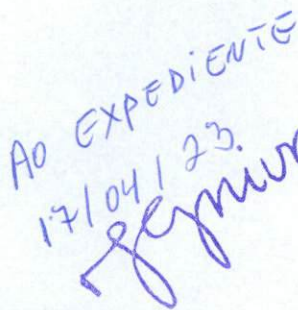 AO EXPEDIENTE
17/04/23.